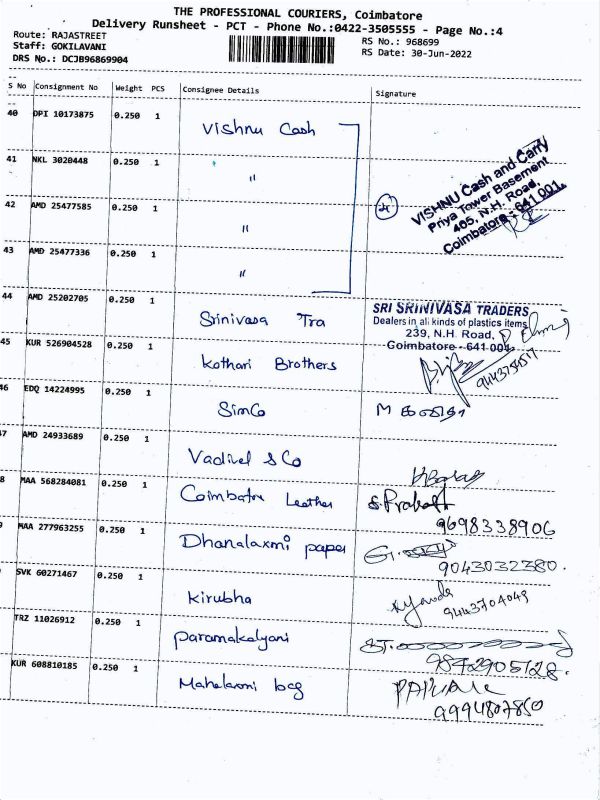 THE PROFESSIONAL COURIERS, Coimbatore
Delivery Runsheet - PCT - Phone No.:0422-3505555 - Page No.:4
Route: RAJASTREET
RS No.: 968699
Staff: GOKILAVANI
RS Date: 30-Jun-2022
DRS No.: DCJB96869904
S No Consignment No Weight PCS Consignee Details Signature
40 DPI 10173875 0.250 1 Vishnu Cash
41 NKL 3020448 0.250 1 "
42 AMD 25477585 0.250 1 " 4
43 AMD 25477336 0.250 1 "
VISHNU Cash and Carry
Priya Tower Basement
405, N.H. Road,
Coimbatore - 641 001.
44 AMD 25202705 0.250 1 Srinivasa Tra
SRI SRINIVASA TRADERS
Dealers in all kinds of plastics items
239, N.H. Road,
Coimbatore - 641 001
45 KUR 526904528 0.250 1 Kothari Brothers
46 EDQ 14224995 0.250 1 SimCo
47 AMD 24933689 0.250 1 Vadivel & Co
8 MAA 568284081 0.250 1 Coimbatore Leather S. Prakash
9698338906
MAA 277963255 0.250 1 Dhanalaxmi paper
9043032380.
SVK 60271467 0.250 1 Kirubha
9443704049
TRZ 11026912 0.250 1 Paramakalyani
9842905128.
KUR 608810185 0.250 1 Mahalaxmi bag
9994807850